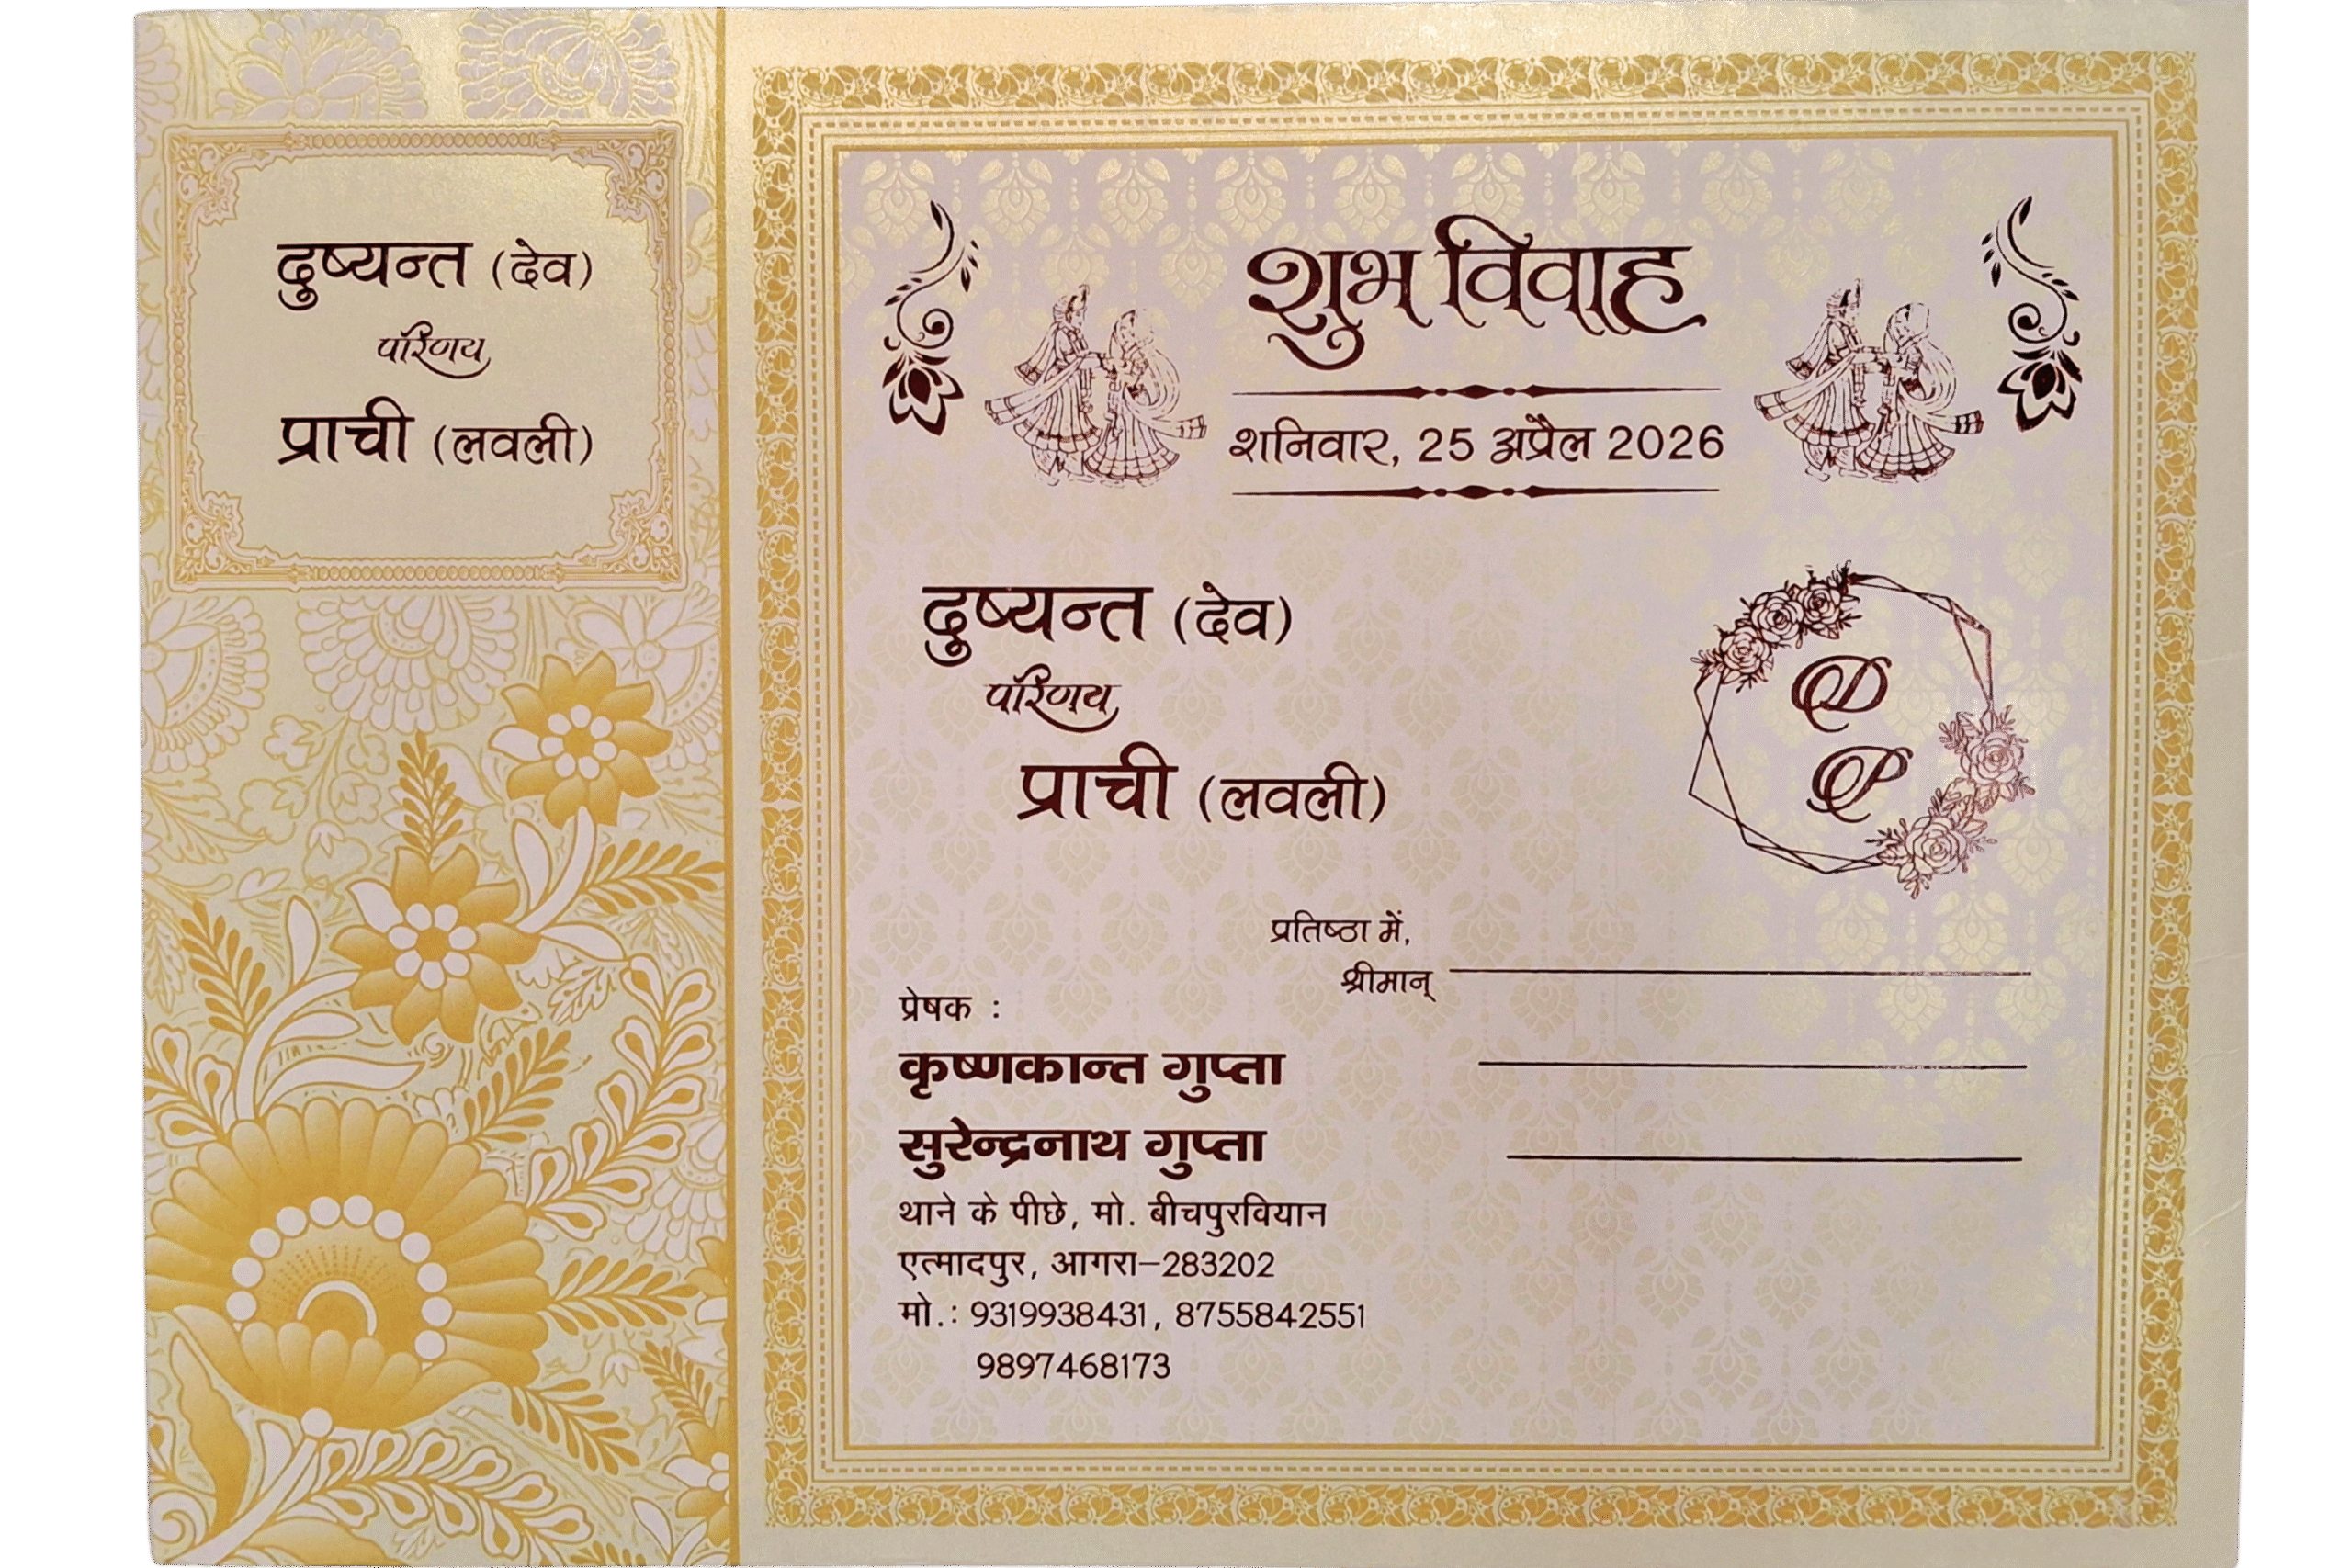 दुष्यन्त (देव)
परिणय
प्राची (लवली)
शुभ विवाह
शनिवार, 25 अप्रैल 2026
दुष्यन्त (देव)
परिणय
प्राची (लवली)
D
P
प्रतिष्ठा में,
श्रीमान्
प्रेषक :
कृष्णकान्त गुप्ता
सुरेन्द्रनाथ गुप्ता
थाने के पीछे, मो. बीचपुरवियान
एत्मादपुर, आगरा–283202
मो.: 9319938431, 8755842551
9897468173